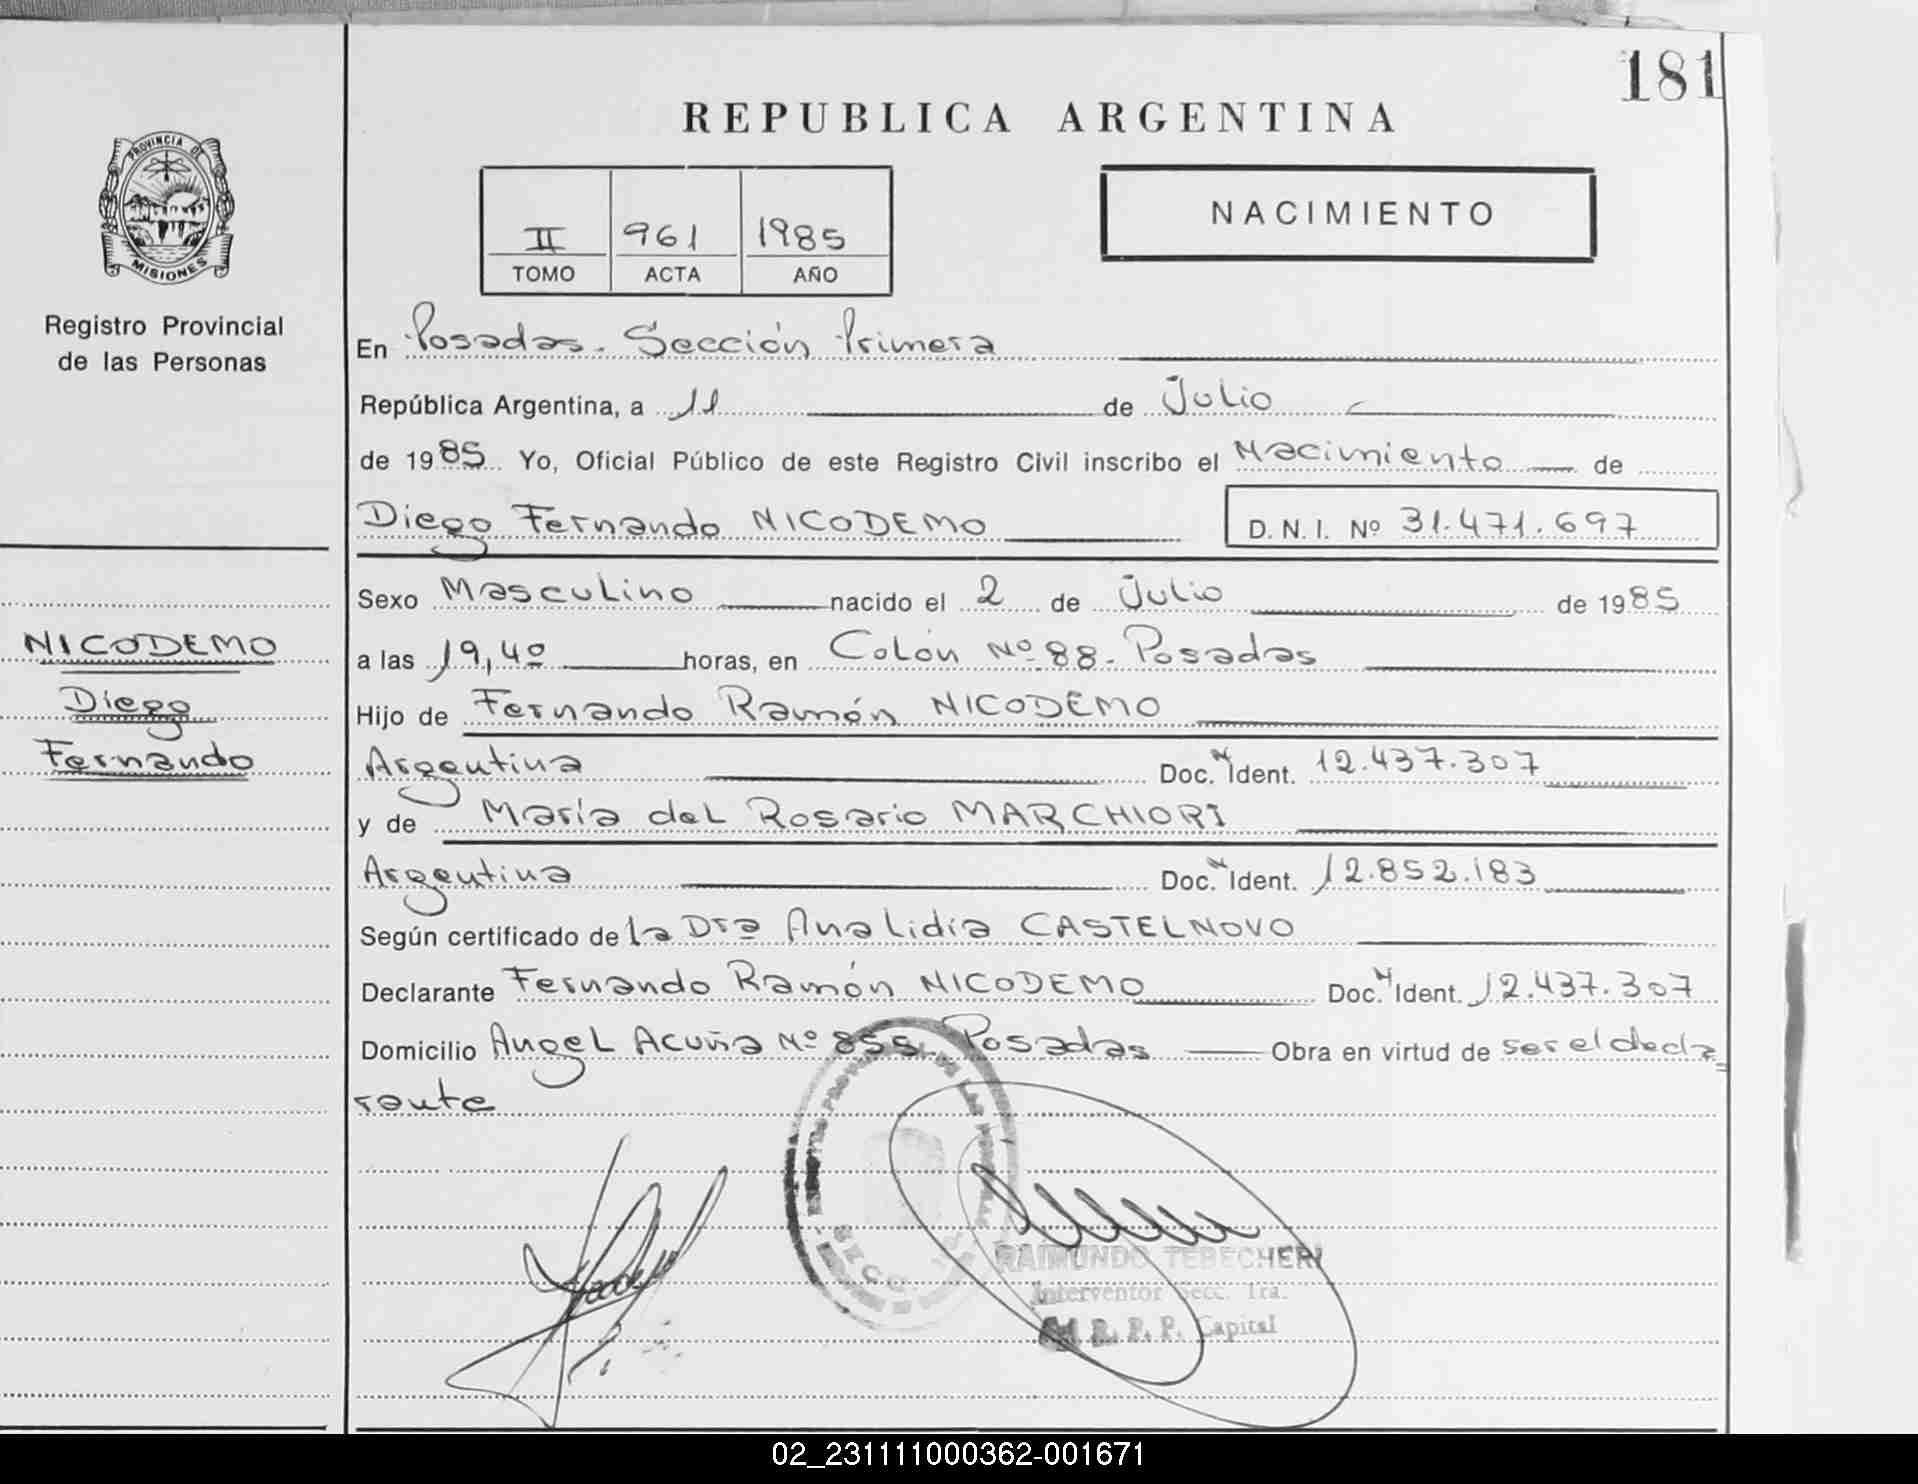 181
REPUBLICA ARGENTINA
PROVINCIA DE
MISIONES
Registro Provincial
de las Personas
II 961 1985
TOMO ACTA AÑO
NACIMIENTO
En Posadas. Sección Primera
República Argentina, a 11 de Julio
de 1985 Yo, Oficial Público de este Registro Civil inscribo el Nacimiento de
Diego Fernando NICODEMO D. N. I. Nº 31.471.697
Sexo Masculino nacido el 2 de Julio de 1985
NICODEMO
Diego
Fernando
a las 19,40 horas, en Colón Nº 88. Posadas
Hijo de Fernando Ramón NICODEMO
Argentina Doc. N Ident. 12.437.307
y de María del Rosario MARCHIORI
Argentina Doc. N Ident. 12.852.183
Según certificado de la Dra Analidia CASTELNOVO
Declarante Fernando Ramón NICODEMO Doc. N Ident. 12.437.307
Domicilio Angel Acuña Nº 855. Posadas Obra en virtud de ser el decla=
rante
SECC.
RAIMUNDO TEBECHERI
Interventor Secc. 1ra.
R. P. P. Capital
02_231111000362-001671